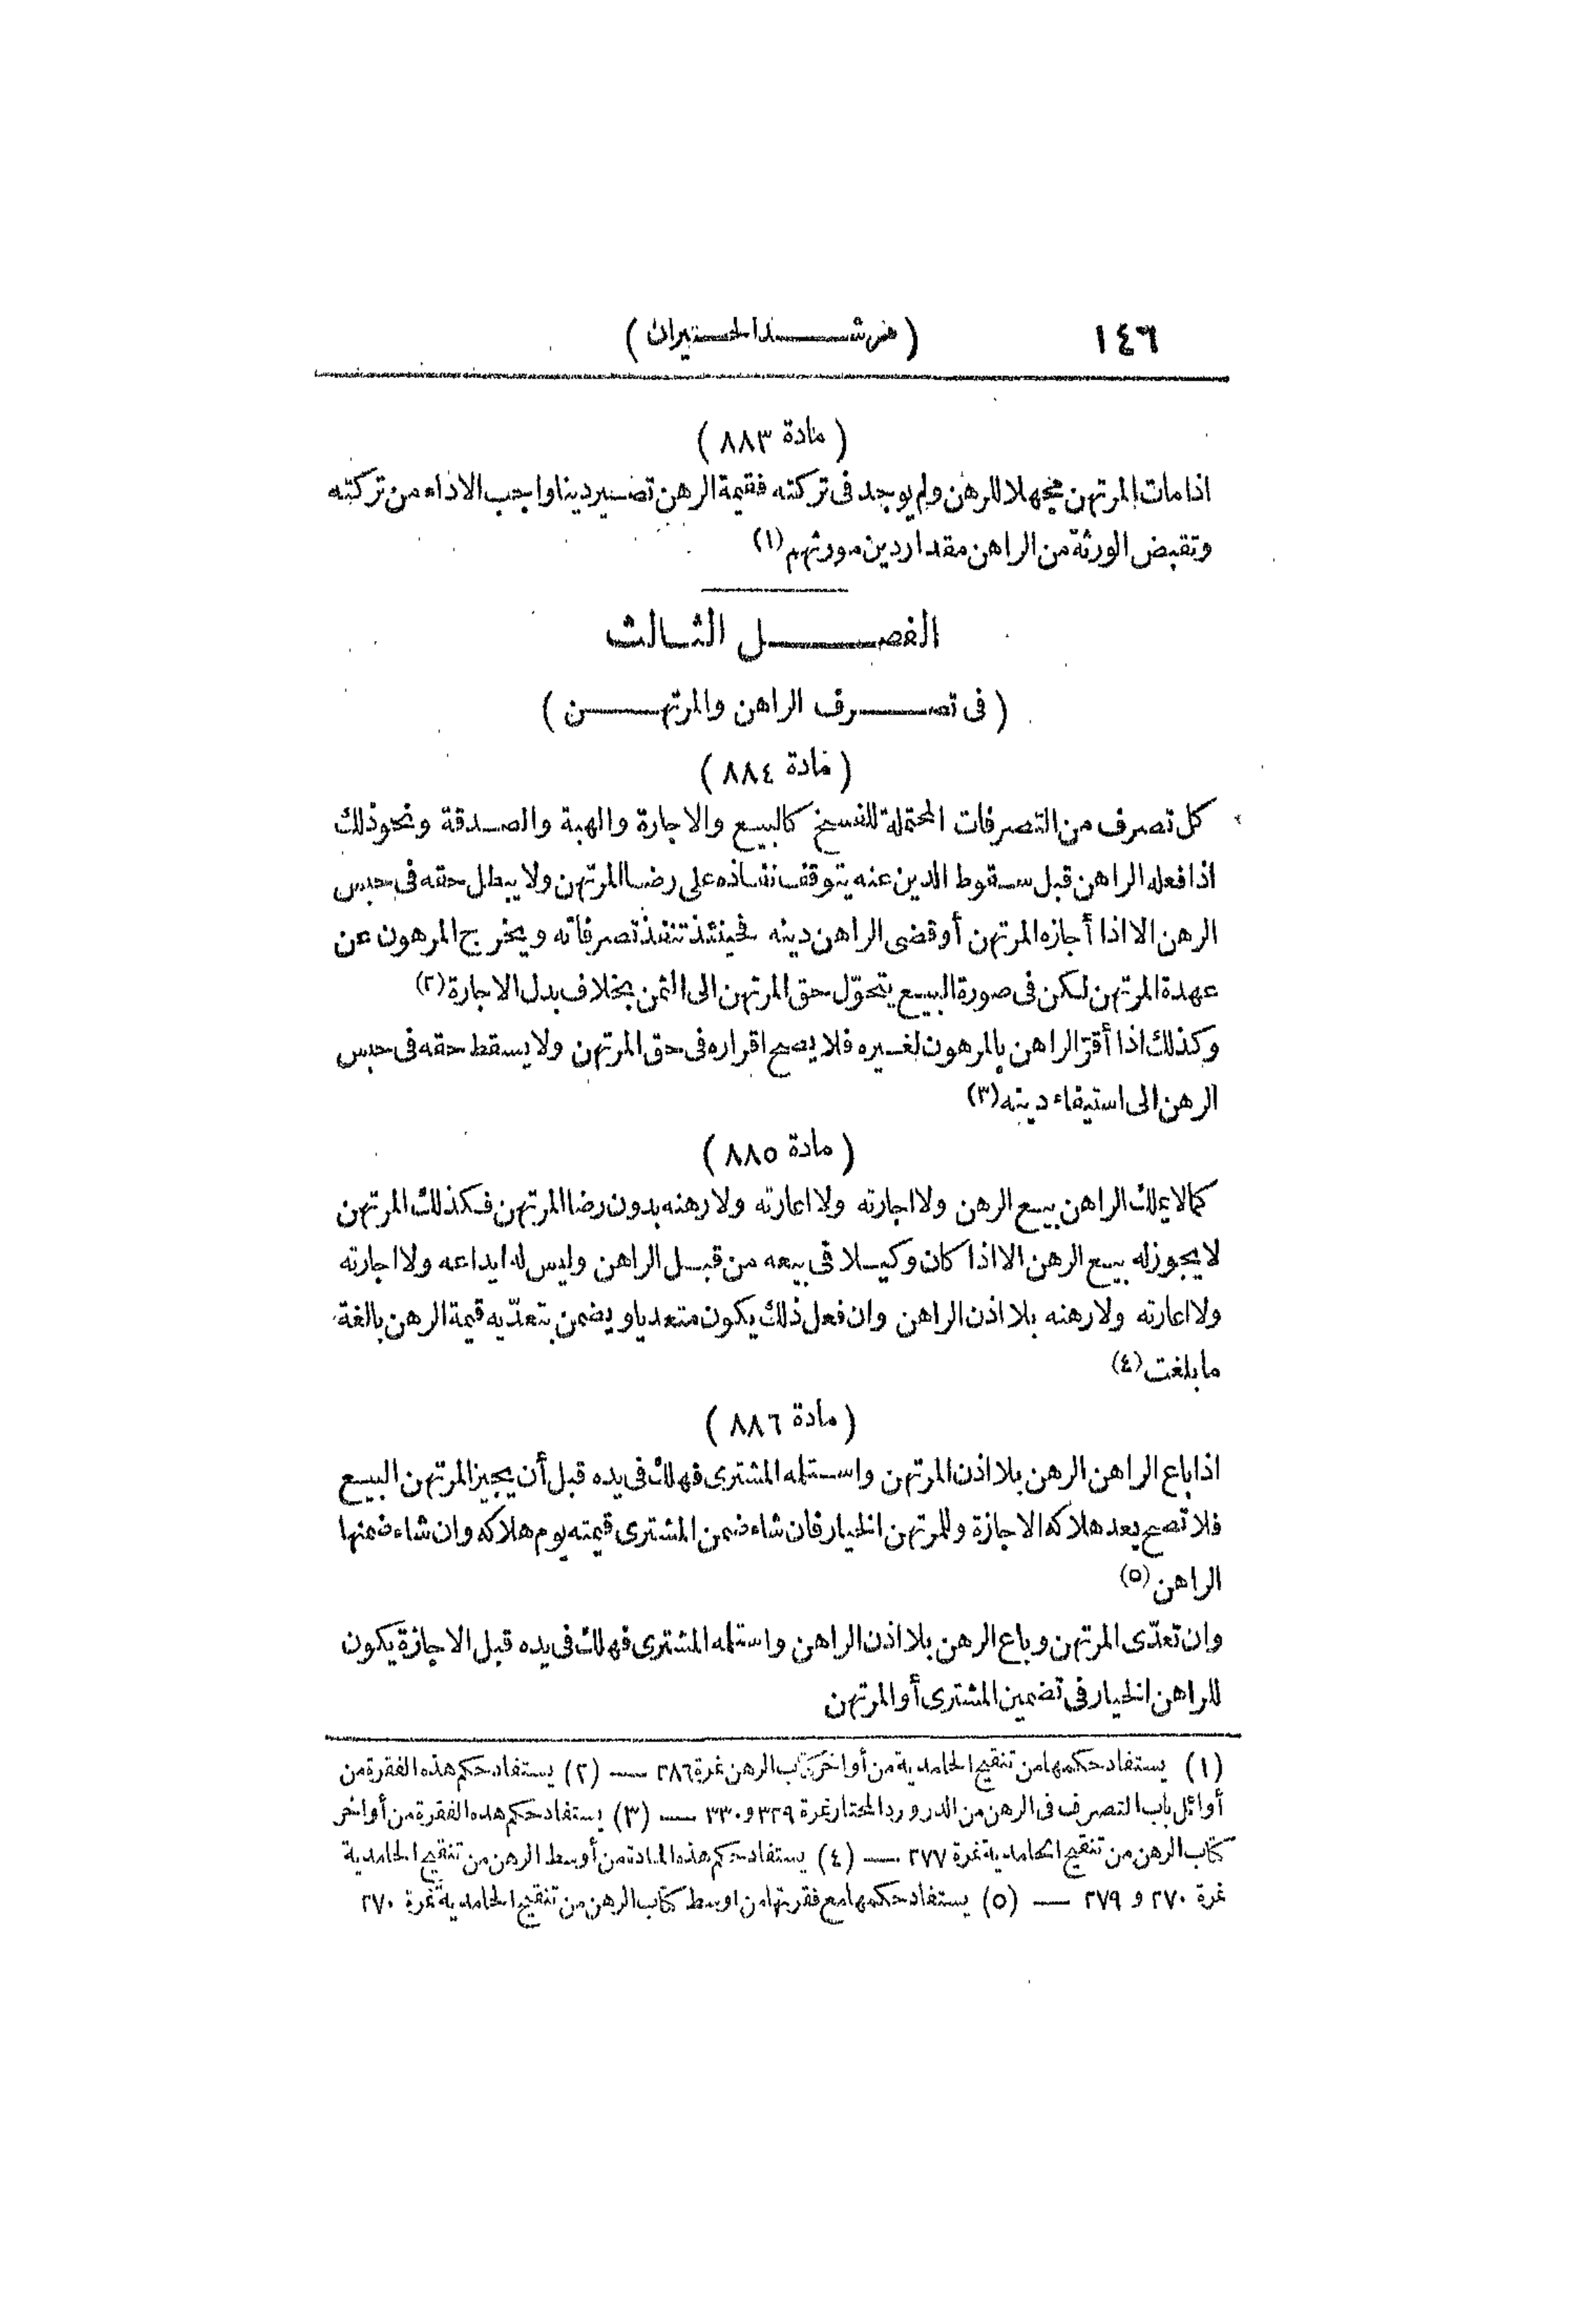 ١٤٦ ( مرشد الحيران )
( مادة ٨٨٣ )
اذا مات المرتهن مجهلا للرهن ولم يوجد فى تركته فقيمة الرهن تصير دينا واجب الاداء من تركته
وتقبض الورثة من الراهن مقدار دين مورثهم (١)
الفصل الثالث
( فى تصرف الراهن والمرتهن )
( مادة ٨٨٤ )
كل تصرف من التصرفات المحتملة للفسخ كالبيع والاجارة والهبة والصدقة ونحو ذلك
اذا فعله الراهن قبل سقوط الدين عنه يتوقف نفاذه على رضا المرتهن ولا يبطل حقه فى حبس
الرهن الا اذا أجازه المرتهن أو قضى الراهن دينه فحينئذ تنفذ تصرفاته ويخرج المرهون عن
عهدة المرتهن لكن فى صورة البيع يتحوّل حق المرتهن الى الثمن بخلاف بدل الاجارة (٢)
وكذلك اذا أقرّ الراهن بالمرهون لغيره فلا يصح اقراره فى حق المرتهن ولا يسقط حقه فى حبس
الرهن الى استيفاء دينه (٣)
( مادة ٨٨٥ )
كما لا يملك الراهن بيع الرهن ولا اجارته ولا اعارته ولا رهنه بدون رضا المرتهن فكذلك المرتهن
لا يجوز له بيع الرهن الا اذا كان وكيلا فى بيعه من قبل الراهن وليس له ايداعه ولا اجارته
ولا اعارته ولا رهنه بلا اذن الراهن وان فعل ذلك يكون متعديا ويضمن بتعدّيه قيمة الرهن بالغة
ما بلغت (٤)
( مادة ٨٨٦ )
اذا باع الراهن الرهن بلا اذن المرتهن واستلمه المشترى فهلك فى يده قبل أن يجيز المرتهن البيع
فلا تصح بعد هلاكه الاجازة وللمرتهن الخيار فان شاء ضمن المشترى قيمته يوم هلاكه وان شاء ضمنها
الراهن (٥)
وان تعدّى المرتهن وباع الرهن بلا اذن الراهن واستلمه المشترى فهلك فى يده قبل الاجازة يكون
للراهن الخيار فى تضمين المشترى أو المرتهن
(١) يستفاد حكمها من تنقيح الحامدية من أواخر كتاب الرهن نمرة ٢٨٦ — (٢) يستفاد حكم هذه الفقرة من
أوائل باب التصرف فى الرهن من الدر ورد المحتار نمرة ٣٢٩ و ٣٣٠ — (٣) يستفاد حكم هذه الفقرة من أواخر
كتاب الرهن من تنقيح الحامدية نمرة ٢٧٧ — (٤) يستفاد حكم هذه المادة من أوسط الرهن من تنقيح الحامدية
نمرة ٢٧٠ و ٢٧٩ — (٥) يستفاد حكمها مع فقرتها من اوسط كتاب الرهن من تنقيح الحامدية نمرة ٢٧٠